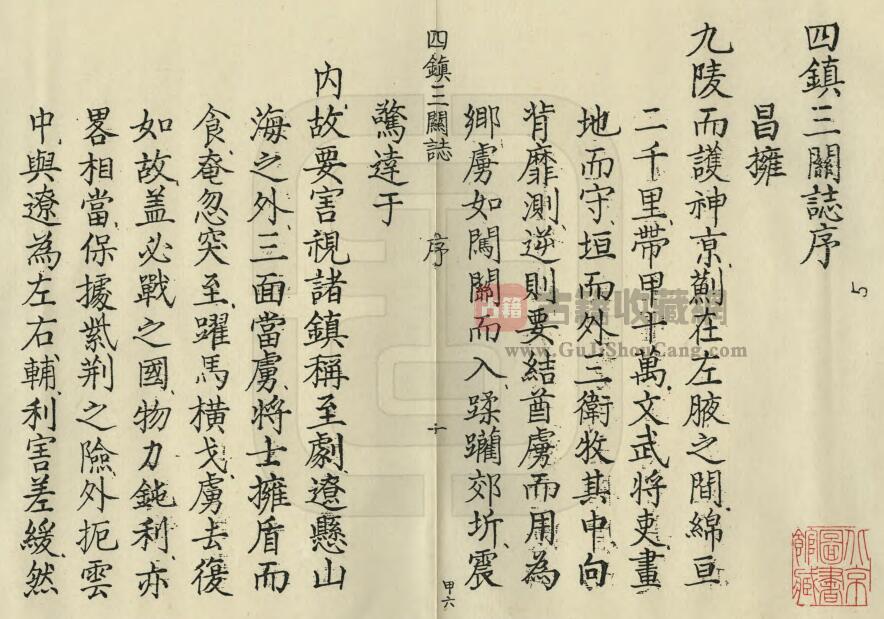 四鎮三關誌序
昌擁
九陵而護神京薊在左腋之間綿亘
二千里帶甲十萬文武將吏畫
地而守垣而外三衛牧其中向
背靡測逆則要結酋虜而用為
鄉虜如闖關而入蹂躪郊圻震
驚達于
四鎮三關誌
序
十
甲六
內故要害視諸鎮稱至劇遼懸山
海之外三面當虜將士擁盾而
食奄忽突至躍馬橫戈虜去復
如故盖必戰之國物力鈍利亦
畧相當保據紫荆之險外扼雲
中與遼為左右輔利害差緩然
5
北京圖書館藏
古籍
古籍收藏網
www.GuJiShouCang.com